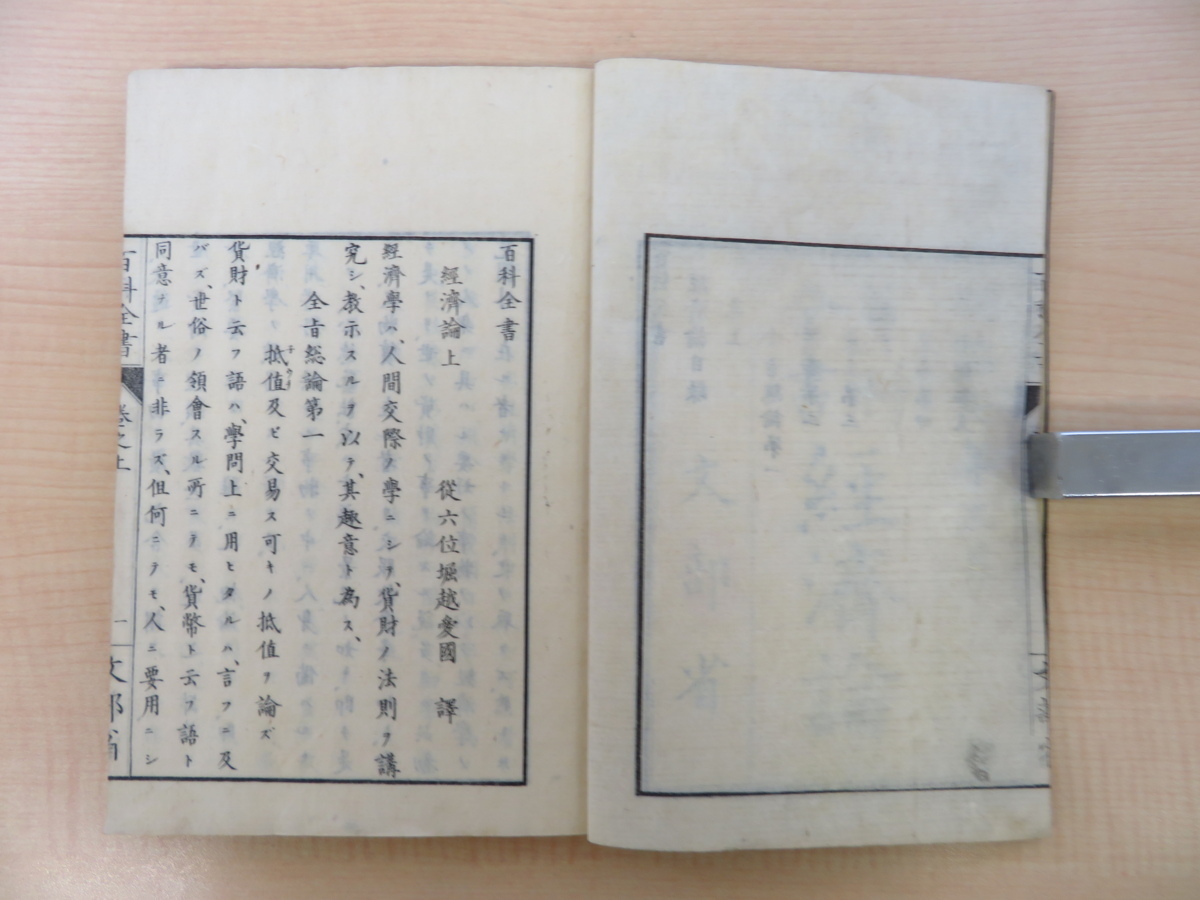 百科全書
經濟論上　從六位堀越愛國　譯
經濟學ハ、人間交際ノ學ニシテ、貨財ノ法則ヲ講
究シ、教示スルヲ以テ、其趣意ト為ス、
全旨総論第一
抵值及ビ交易ス可キノ抵值ヲ論ズ
貨財ト云フ語ハ、學問上ニ用ヒタルハ、言フニ及
バズ、世俗ノ領會スル所ニテモ、貨幣ト云フ語ト
同意ナル者ニ非ラズ、但何ニテモ、人ニ要用ニシ
百科全書　卷之上　一　文部省